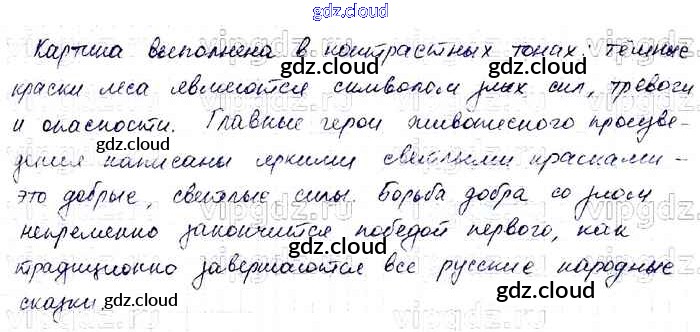 gdz.cloud
Картина выполнена в контрастных тонах: тёмные
gdz.cloud
gdz.cloud
краски леса являются символом злых сил, тревоги
и опасности. Главные герои живописного произве-
gdz.cloud
gdz.cloud
дения написаны яркими светлыми красками –
vipgdz.ru
vipgdz
это добрые, светлые силы. Борьба добра со злом
непременно закончится победой первого, как
gdz.cloud
традиционно завершаются все русские народные
gdz.cloud
сказки.
gdz.cloud
gdz.cloud